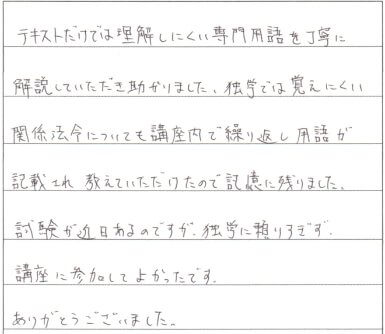 テキストだけでは理解しにくい専門用語を丁寧に
解説していただき助かりました、独学では覚えにくい
関係法令についても講座内で繰り返し用語が
記載され 教えていただけたので記憶に残りました、
試験が近日あるのですが、独学に頼りすぎず、
講座に参加してよかったです、
ありがとうございました。